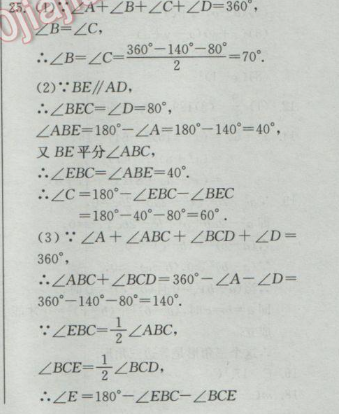 25. (1)∵∠A+∠B+∠C+∠D=360°,
∠B=∠C,
∴∠B=∠C=(360°-140°-80°)/2=70°.
(2)∵BE∥AD,
∴∠BEC=∠D=80°,
∠ABE=180°-∠A=180°-140°=40°,
又 BE 平分∠ABC,
∴∠EBC=∠ABE=40°.
∴∠C=180°-∠EBC-∠BEC
=180°-40°-80°=60°.
(3)∵∠A+∠ABC+∠BCD+∠D=
360°,
∴∠ABC+∠BCD=360°-∠A-∠D=
360°-140°-80°=140°.
∵∠EBC=1/2∠ABC,
∠BCE=1/2∠BCD,
∴∠E=180°-∠EBC-∠BCE